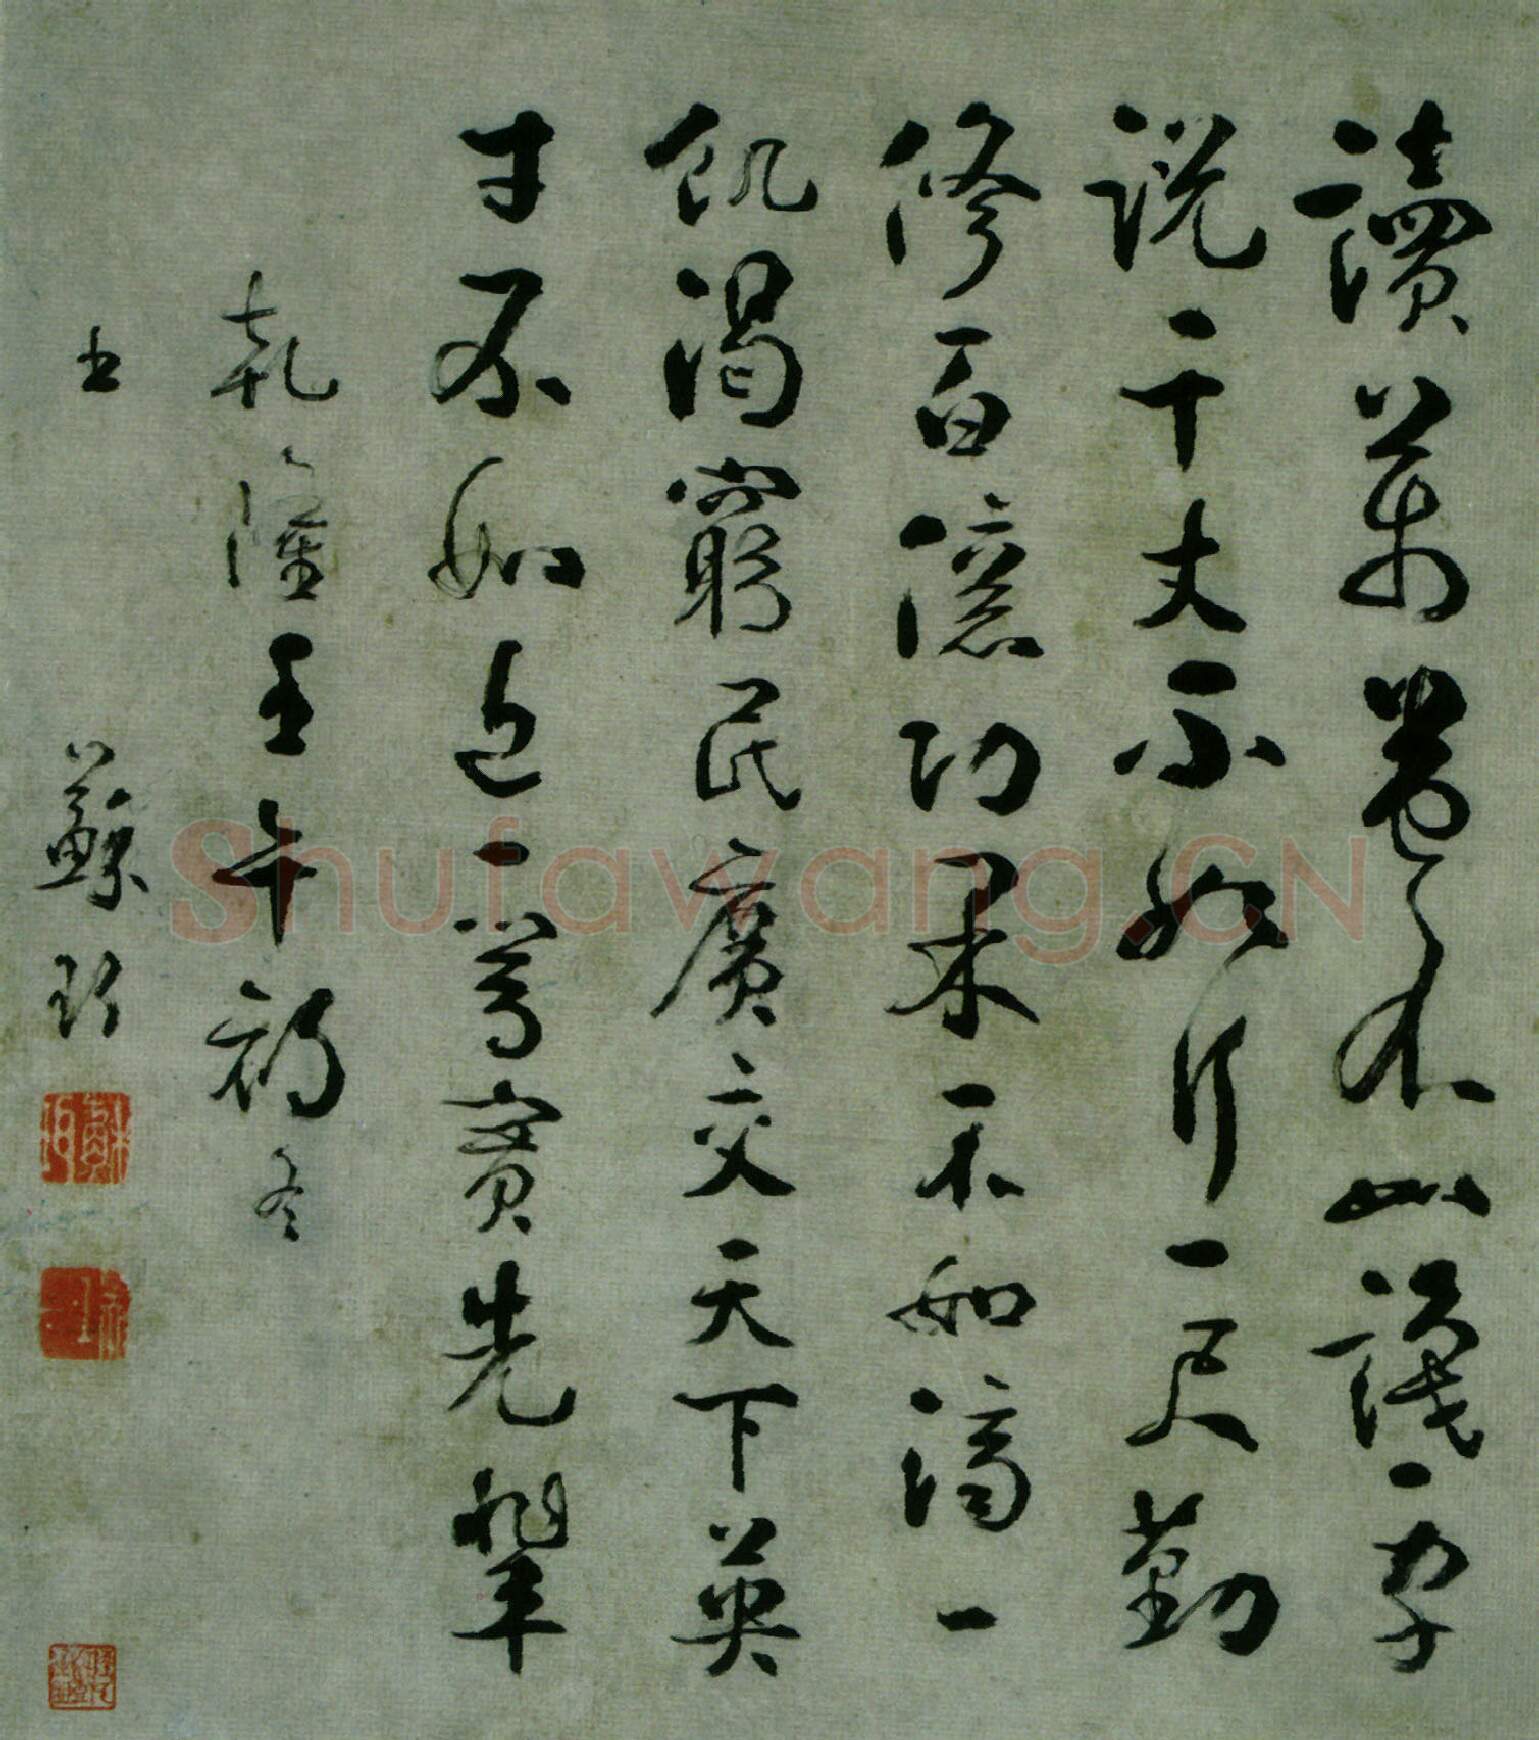 讀萬卷不如識一字
說千丈不如行一尺勤
修百億功果不如濟一
飢渴窮民廣交天下英
才不如近一尊賓先輩
乾隆壬午初冬
蘇
Shufawang.CN